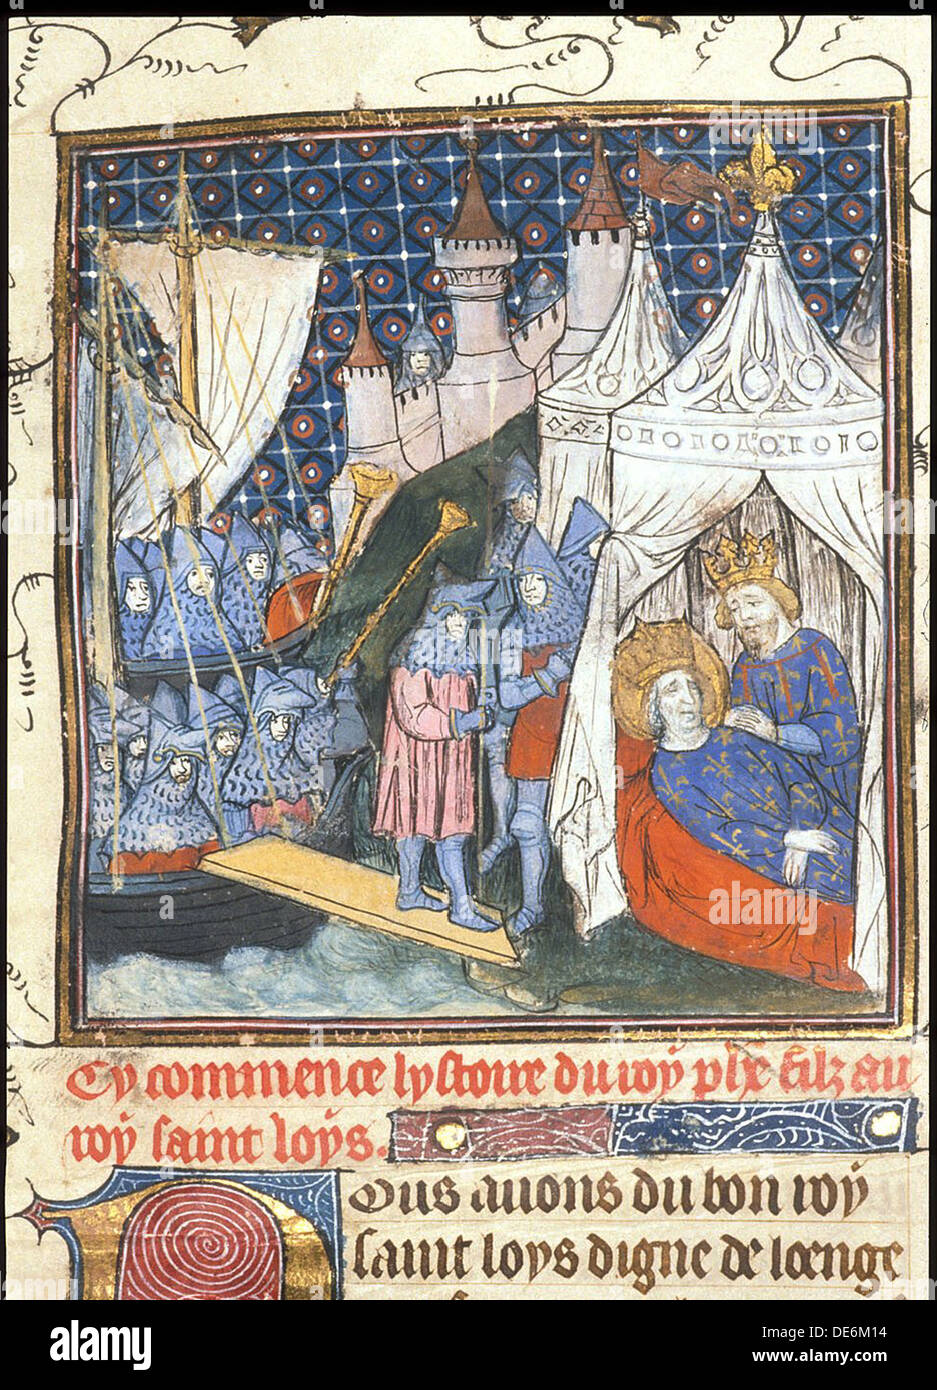 Cy commence lystoire du roy phe filz au
roy saint loys.
Nous auons du bon roy
saint loys digne de loenge
alamy
Image ID: DE6M14
www.alamy.com